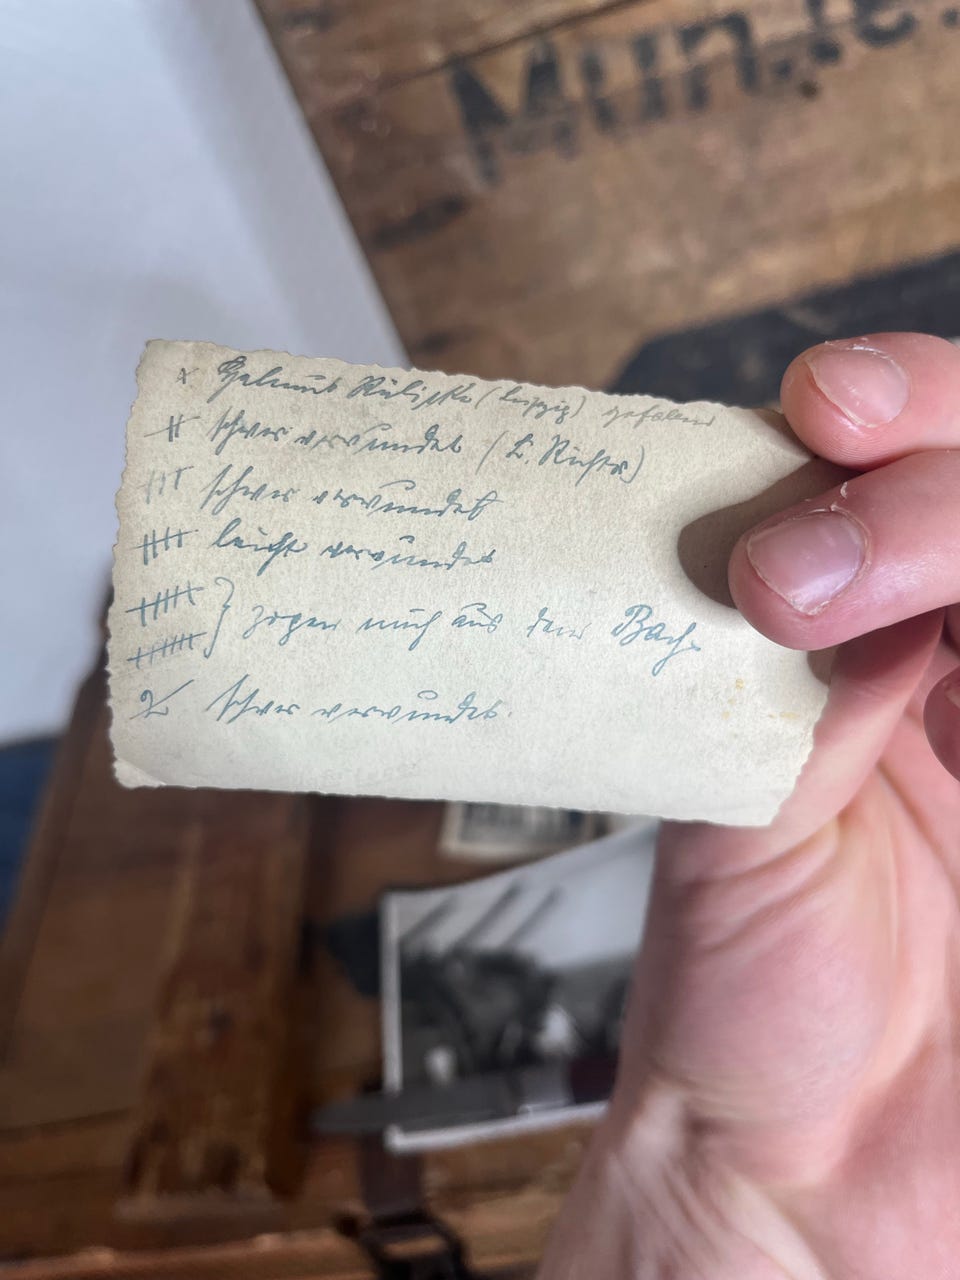 Mun.
x Helmut Rülicke (Leipzig) gefallen
schwer verwundet (L. Richter)
schwer verwundet
leicht verwundet
} zogen mich aus dem Bach.
schwer verwundet.